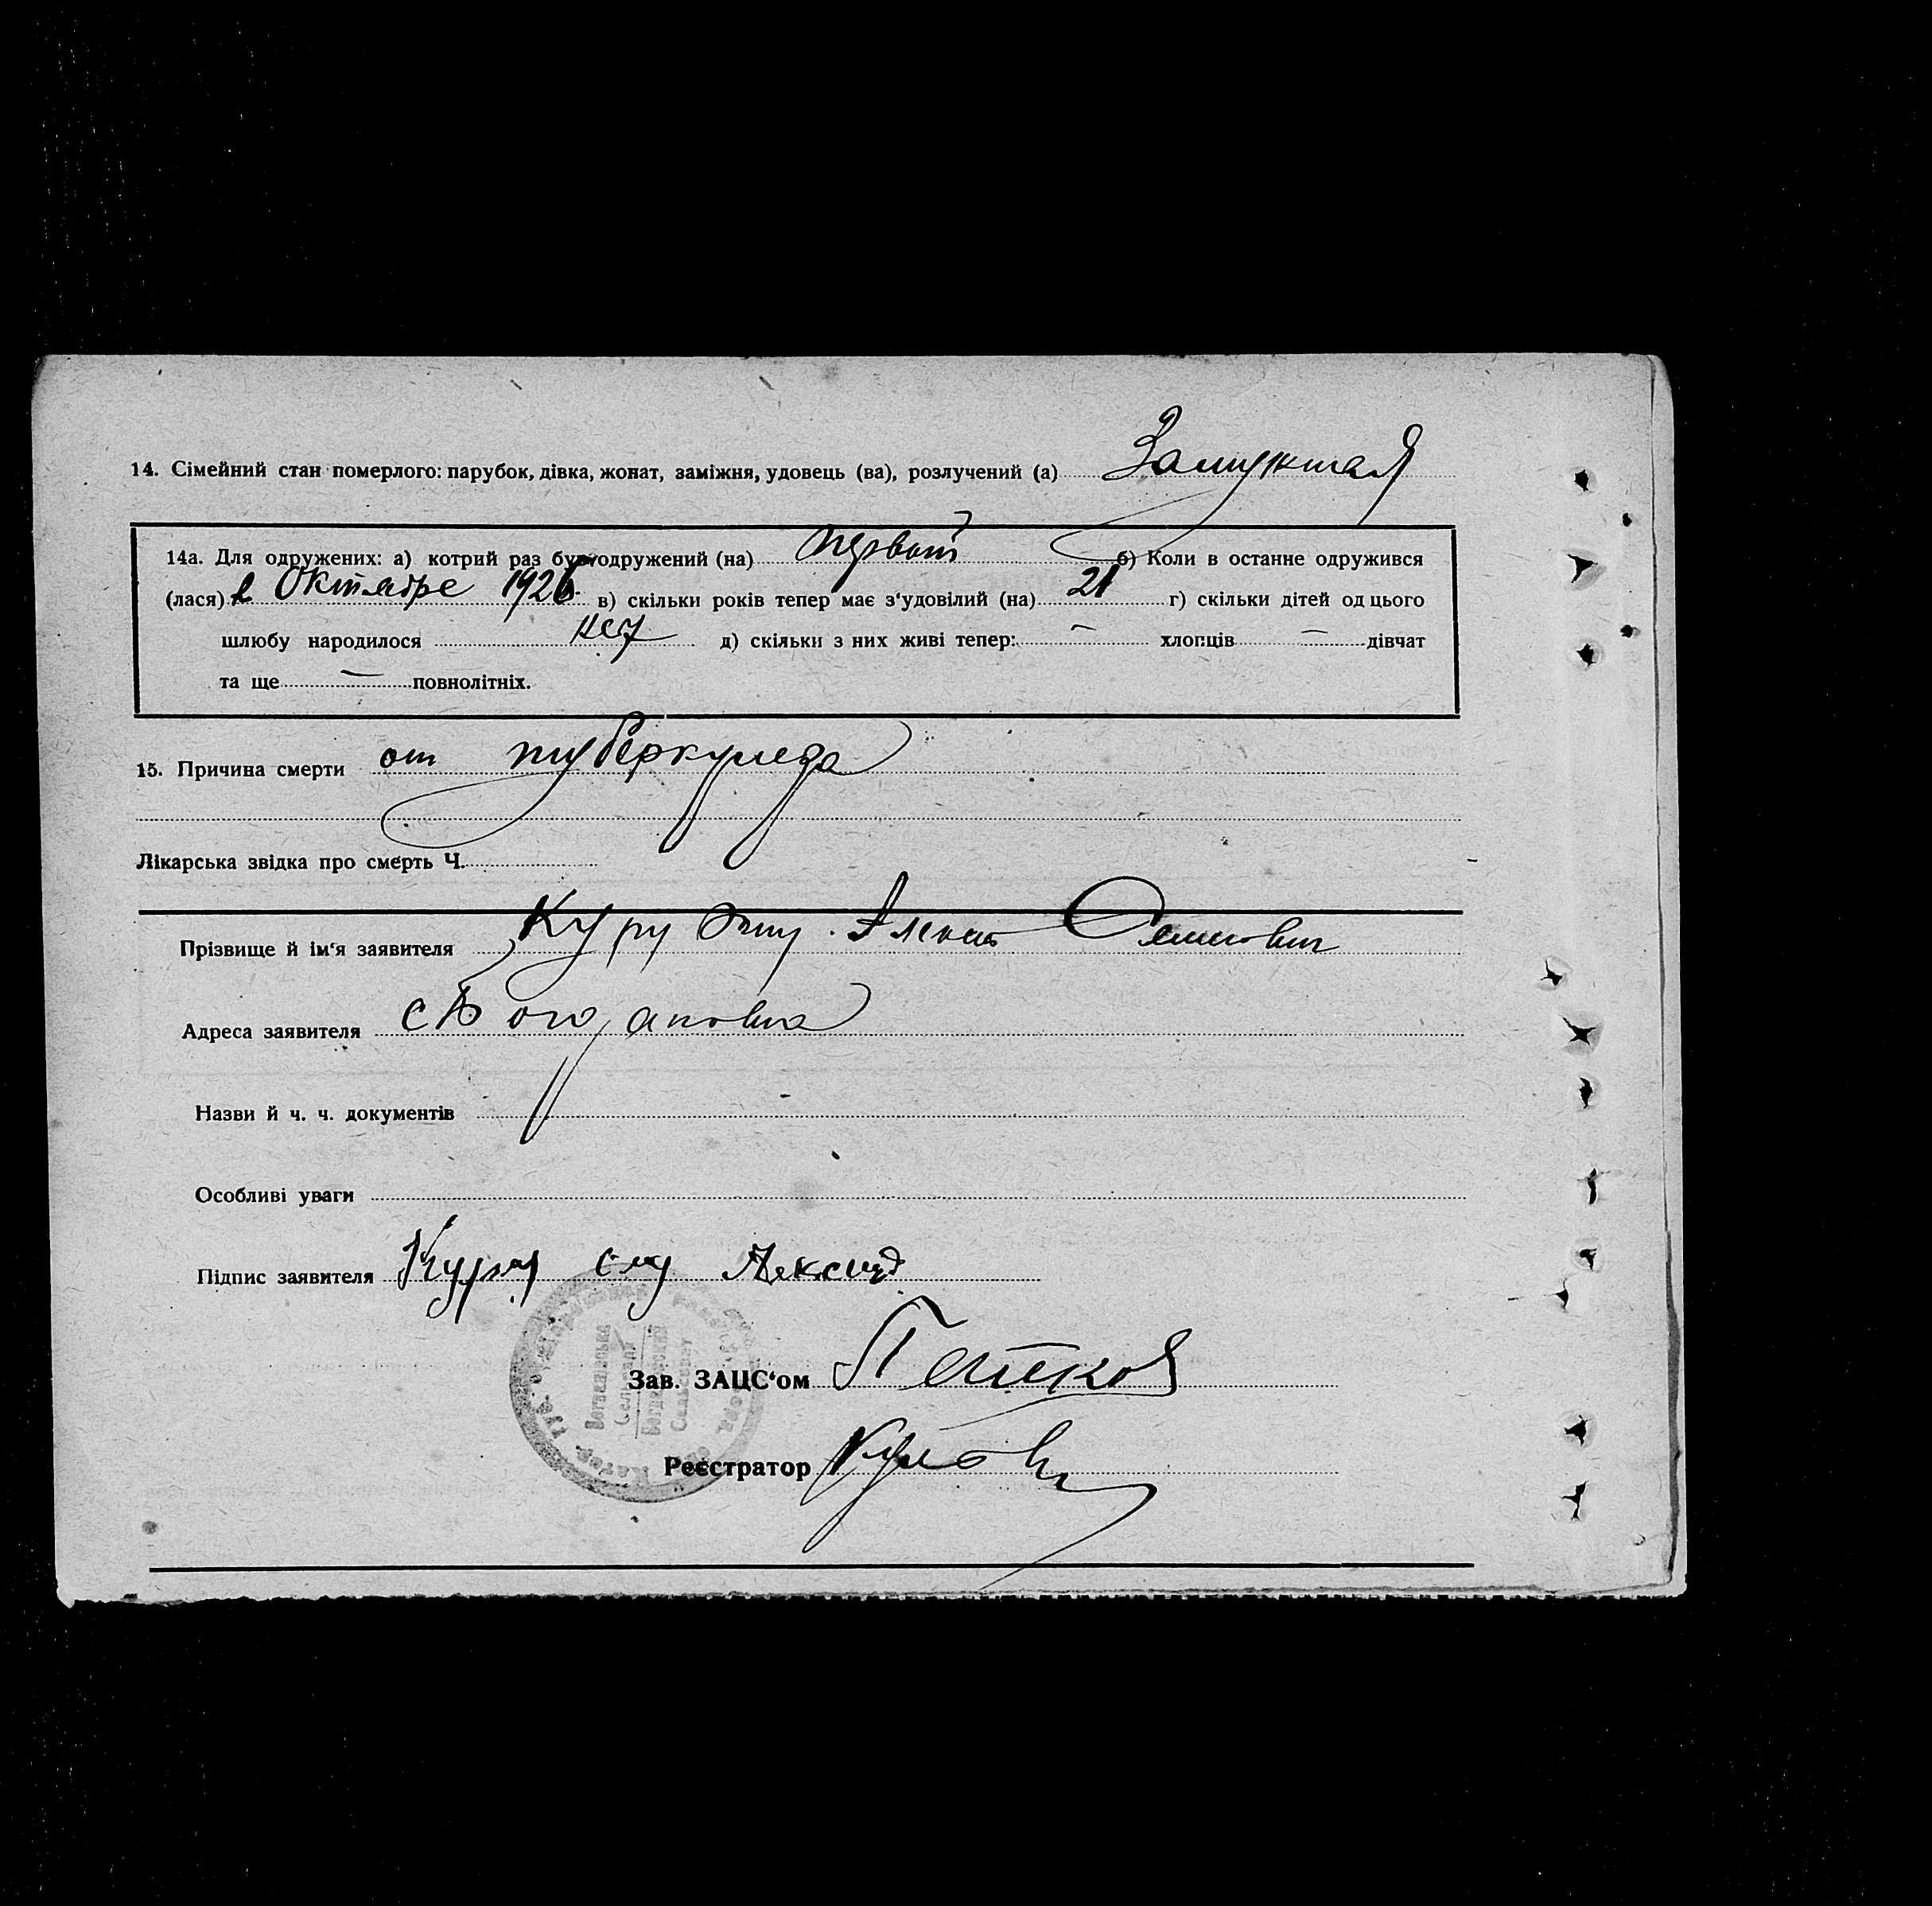 14. Сімейний стан померлого: парубок, дівка, жонат, заміжня, удовець (ва), розлучений (а) Замужная
14а. Для одружених: а) котрий раз був одружений (на) первый б) Коли в останне одружився
(лася) в Октябре 1926 в) скільки років тепер має з‘удовілий (на) 21 г) скільки дітей од цього
шлюбу народилося нет д) скільки з них живі тепер: — хлопців — дівчат
та ще — повнолітніх.
15. Причина смерти от туберкулеза
Лікарська звідка про смерть Ч.
Прізвище й ім‘я заявителя Семенович
Адреса заявителя с Богдановка
Назви й ч. ч. документів
Особливі уваги
Підпис заявителя
Зав. ЗАЦС‘ом
Реєстратор